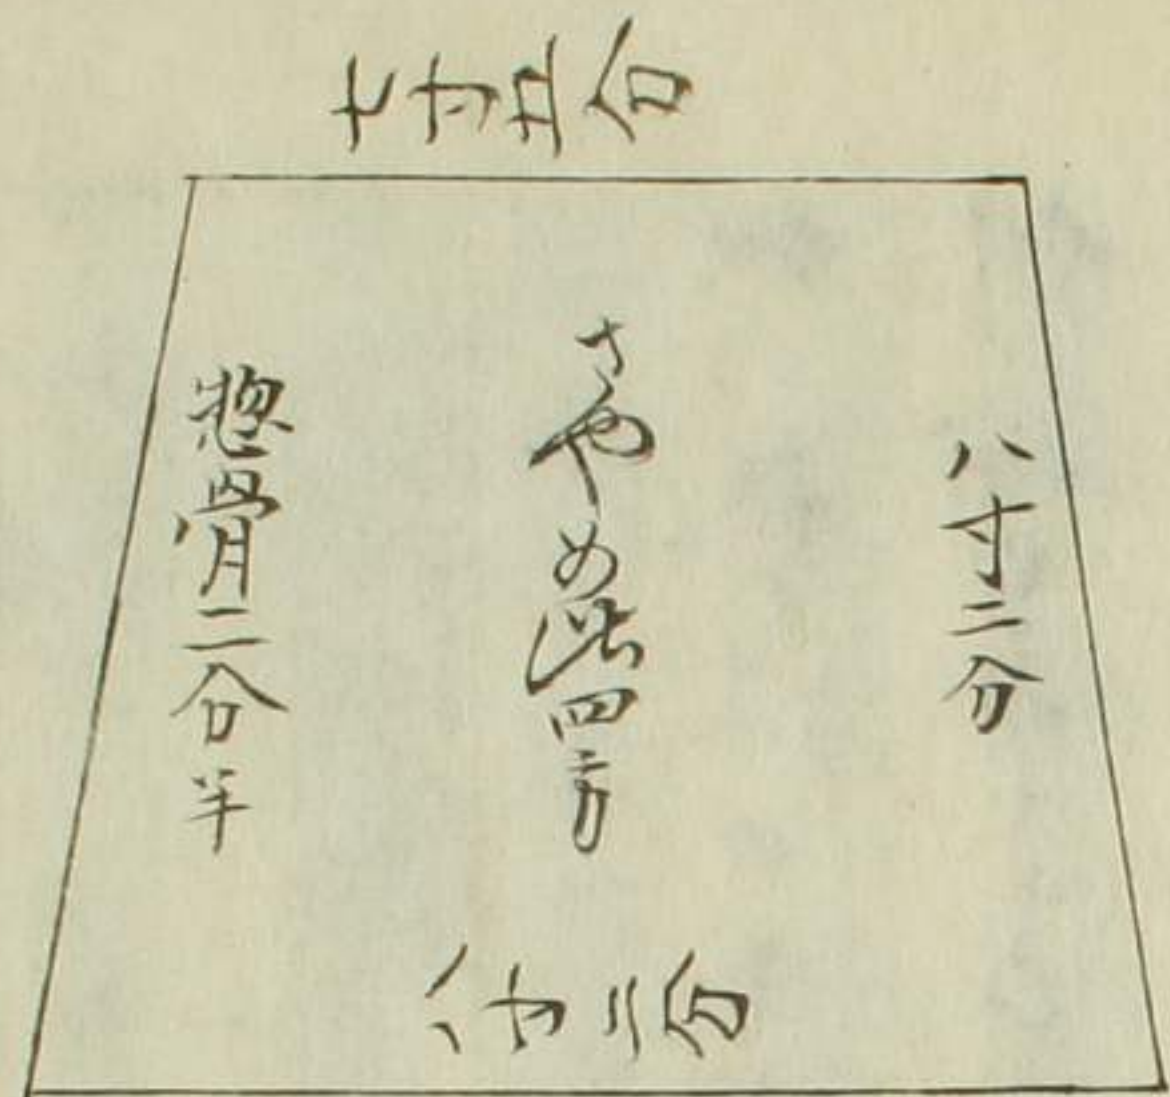 七寸五分
八寸二分
さやめ此四方
惣骨二分半
八寸二分